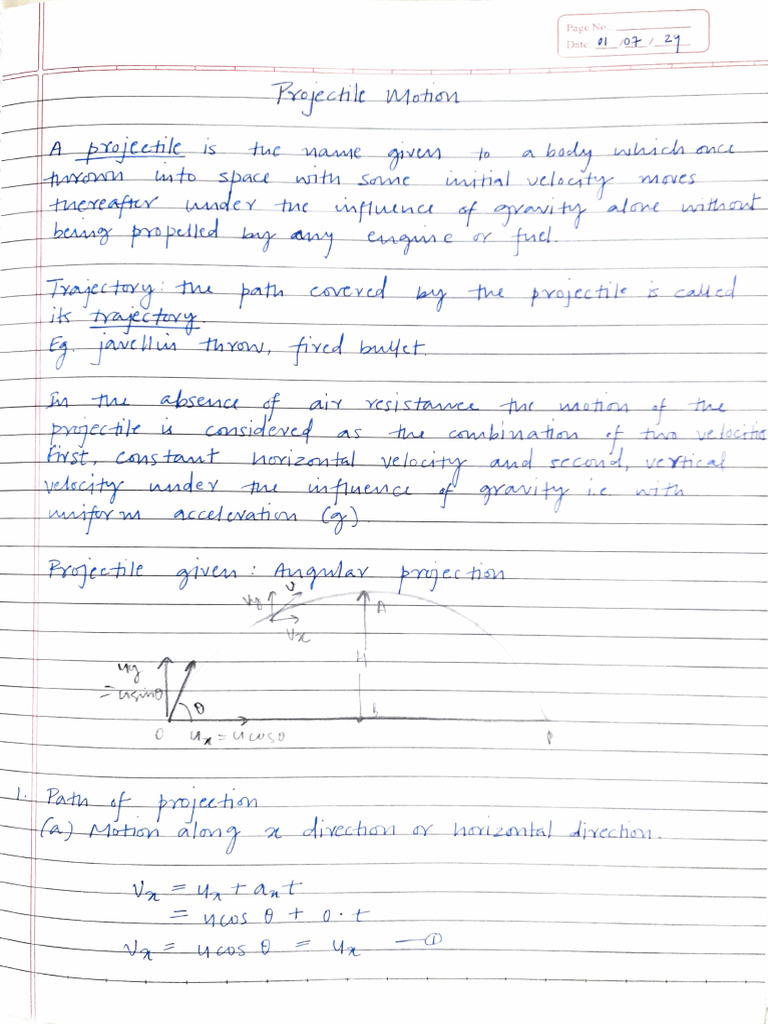 Page No.
Date 01 / 07 / 24
Projectile Motion
A projectile is the name given to a body which once
thrown into space with some initial velocity moves
thereafter under the influence of gravity alone without
being propelled by any engine or fuel.
Trajectory: the path covered by the projectile is called
its trajectory.
Eg. javellin throw, fired bullet.
In the absence of air resistance the motion of the
projectile is considered as the combination of two velocities
First, constant horizontal velocity and second, vertical
velocity under the influence of gravity i.e. with
uniform acceleration (g).
Projectile given: Angular projection
vy v
A
vx
H
uy
= usinθ
θ
O ux = ucosθ
1. Path of projection
(a) Motion along x direction or horizontal direction.
Vx = ux + axt
= ucos θ + 0·t
Vx = ucos θ = ux —①